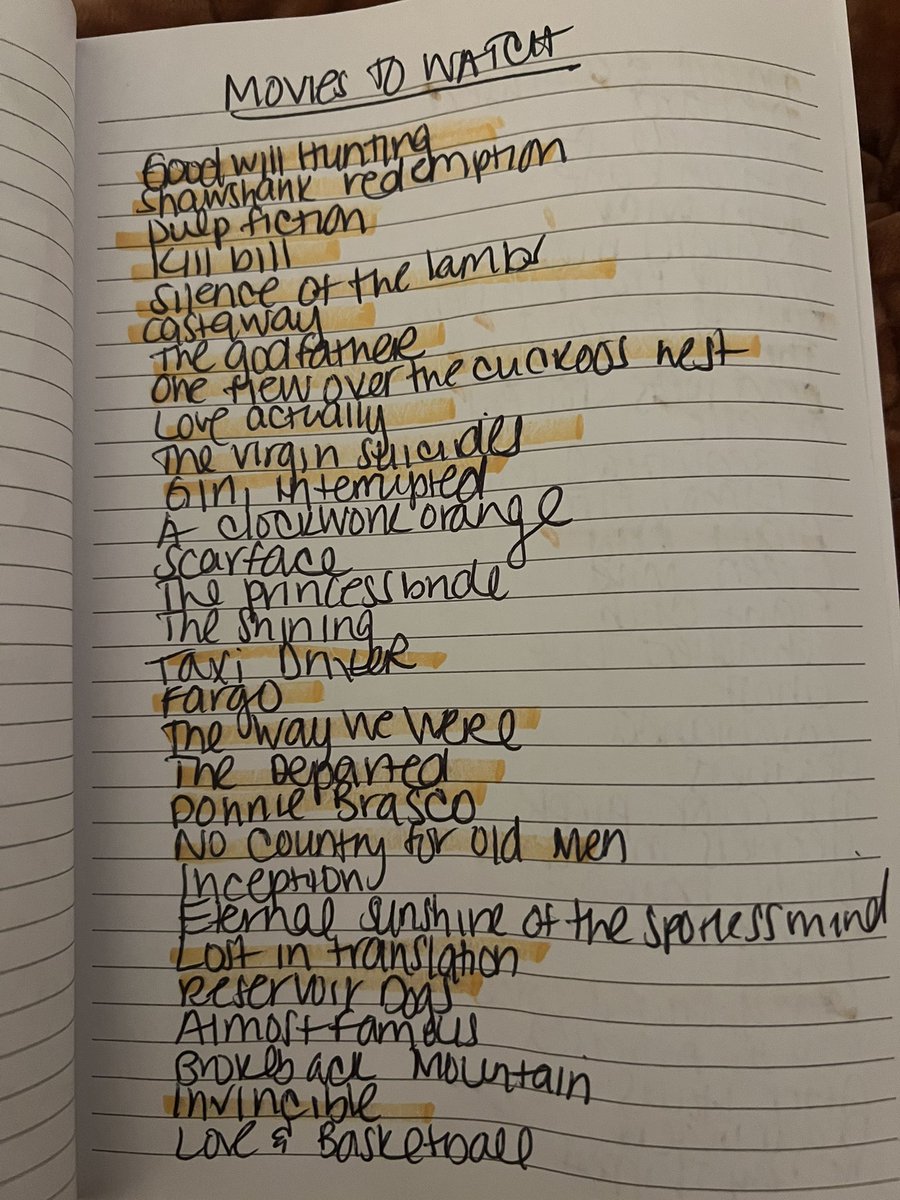 MOVIES TO WATCH
Good will Hunting
Shawshank redemption
pulp fiction
kill bill
silence of the lambs
castaway
The godfather
one flew over the cuckoos nest
Love actually
The virgin suicides
Girl, interrupted
A clockwork orange
Scarface
The princess bride
The shining
Taxi DRIVER
Fargo
The way we were
The Departed
Donnie Brasco
No country for old men
Inception
Eternal sunshine of the spotless mind
Lost in translation
Reservoir Dogs
Almost Famous
Brokeback Mountain
Invincible
Love & Basketball